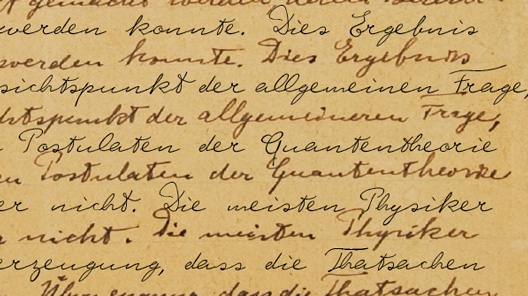 gemacht werden
werden konnte. Dies Ergebnis
werden konnte. Dies Ergebnis
sichtspunkt der allgemeinen Frage,
htspunkt der allgemeineren Frage,
Postulaten der Quantentheorie
en Postulaten der Quantentheorie
er nicht. Die meisten Physiker
nicht. Die meisten Physiker
erzeugung, dass die Thatsachen
Überzeugung, dass die Thatsachen